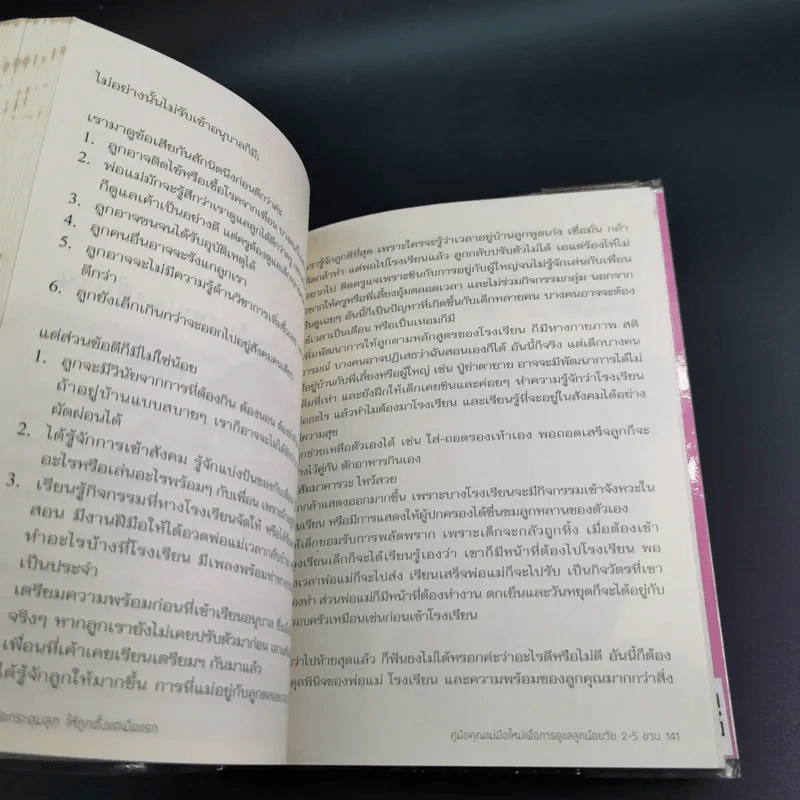 ไม่อย่างนั้นไม่รับเข้าอนุบาลก็มี)
เรามาดูข้อเสียกันสักนิดนึงก่อนดีกว่าค่ะ
1. ลูกอาจติดไข้หรือเชื้อโรคจากเพื่อน
2. พ่อแม่มักจะรู้สึกว่าเราดูแลลูกได้ดีกว่าครู
ก็ดูแลเค้าเป็นอย่างดี แต่ครูต้องดูแล
3. ลูกอาจซนจนได้รับอุบัติเหตุได้
4. ลูกคนอื่นอาจจะรังแกลูกเรา
5. ลูกอาจจะไม่มีความรู้ด้านวิชาการเพิ่มขึ้น
ดีกว่า
6. ลูกยังเล็กเกินกว่าจะออกไปอยู่สังคมคนเดียว
แต่ส่วนข้อดีก็มีไม่ใช่น้อย
1. ลูกจะมีวินัยจากการที่ต้องกิน ต้องนอน
ถ้าอยู่บ้านแบบสบายๆ เราก็อาจจะไม่ได้
ผัดผ่อนได้
2. ได้รู้จักการเข้าสังคม รู้จักแบ่งปันของกับเพื่อน
อะไรหรือเล่นอะไรพร้อมๆ กับเพื่อน
3. เรียนรู้กิจกรรมที่ทางโรงเรียนจัดให้
สอน มีงานฝีมือให้ได้อวดพ่อแม่เวลากลับบ้าน
ทำอะไรบ้างที่โรงเรียน มีเพลงพร้อมท่า
เป็นประจำ
เตรียมความพร้อมก่อนที่เข้าเรียนอนุบาล
จริงๆ หากลูกเรายังไม่เคยปรับตัวมาก่อน
เพื่อนที่เค้าเคยเรียนเตรียมฯ กันมาแล้ว
ได้รู้จักลูกให้มากขึ้น การที่แม่อยู่กับลูกตลอด
กระดุมลูก ให้ถูกตั้งแต่เม็ดแรก
เรารู้จักลูกดีที่สุด เพราะใครจะรู้ว่าเวลาอยู่บ้านลูกพูดเก่ง เชื่อมั่น กล้า
คิดกล้าทำ แต่พอไปโรงเรียนแล้ว ลูกกลับปรับตัวไม่ได้ เอแต่ร้องไห้ไม่
อยากไป ติดครูแจเพราะชินกับการอยู่กับผู้ใหญ่จนไม่รู้จักเล่นกับเพื่อน
อยากให้ครูหรือพี่เลี้ยงอุ้มตลอดเวลา และไม่ร่วมกิจกรรมกลุ่ม นอกจาก
ดูเฉยๆ อันนี้ก็เป็นปัญหาที่เกิดขึ้นกับเด็กหลายคน บางคนอาจจะต้อง
เวลาเป็นเดือน หรือเป็นเทอมก็มี
พัฒนาการให้ลูกตามหลักสูตรของโรงเรียน ก็มีทางกายภาพ สติ
อารมณ์ บางคนอาจปฏิเสธว่าฉันสอนเองก็ได้ อันนี้ก็จริง แต่เด็กบางคน
ที่อยู่บ้านกับพี่เลี้ยงหรือผู้ใหญ่ เช่น ปู่ย่าตายาย อาจจะมีพัฒนาการได้ไม่
ที่เท่า และยังฝึกให้เด็กเคยชินและค่อยๆ ทำความรู้จักว่าโรงเรียน
อะไร แล้วทำไมต้องมาโรงเรียน และเรียนรู้ที่จะอยู่ในสังคมได้อย่าง
ความสุข
ช่วยเหลือตัวเองได้ เช่น ใส่-ถอดรองเท้าเอง พอถอดเสร็จลูกก็จะ
ไว้คู่กัน ตักอาหารกินเอง
สัมมาคารวะ ไหว้สวย
กล้าแสดงออกมากขึ้น เพราะบางโรงเรียนจะมีกิจกรรมเข้าจังหวะใน
เรียน หรือมีการแสดงให้ผู้ปกครองได้ชื่นชมลูกหลานของตัวเอง
ให้เด็กยอมรับการพลัดพราก เพราะเด็กจะกลัวถูกทิ้ง เมื่อต้องเข้า
เรียนเด็กก็จะได้เรียนรู้เองว่า เขาก็มีหน้าที่ต้องไปโรงเรียน พอ
เวลาพ่อแม่ก็จะไปส่ง เรียนเสร็จพ่อแม่ก็จะไปรับ เป็นกิจวัตรที่เขา
ทำ ส่วนพ่อแม่ก็มีหน้าที่ต้องทำงาน ตกเย็นและวันหยุดก็จะได้อยู่กับ
ครอบครัวเหมือนเช่นก่อนเข้าโรงเรียน
ว่าไปท้ายสุดแล้ว ก็ฟันธงไม่ได้หรอกค่ะว่าอะไรดีหรือไม่ดี อันนี้ก็ต้อง
ดุลพินิจของพ่อแม่ โรงเรียน และความพร้อมของลูกคุณมากกว่าสิ่ง
คู่มือคุณแม่มือใหม่เพื่อการดูแลลูกน้อยวัย 2-5 ขวบ 141